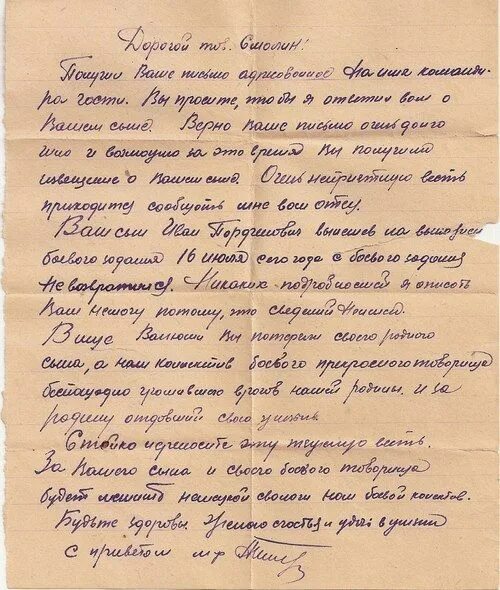 Дорогой тов. Смолин!
Получил Ваше письмо адресованное на имя команди-
ра части. Вы просите, чтобы я ответил вам о
Вашем сыне. Верно Ваше письмо очень долго
шло и возможно за это время Вы получили
извещение о Вашем сыне. Очень неприятную весть
приходится сообщать мне вам отец.
Ваш сын Иван вылетев на выполнен
боевого задания 16 июля сего года с боевого задания
не возвратился. Никаких подробностей я описать
Вам не могу потому, что сведений не имею.
В лице Вы потеряли своего родного
сына, а наш коллектив боевого прекрасного товарища
беспощадно громившего врагов нашей родины. и за
родину отдавший свою жизнь.
Стойко перенесите эту тяжелую весть.
За Вашего сына и своего боевого товарища
будет мстить немецкой сволочи наш боевой коллектив.
Будьте здоровы. Желаю счастья и удач в жизни
с приветом м-р